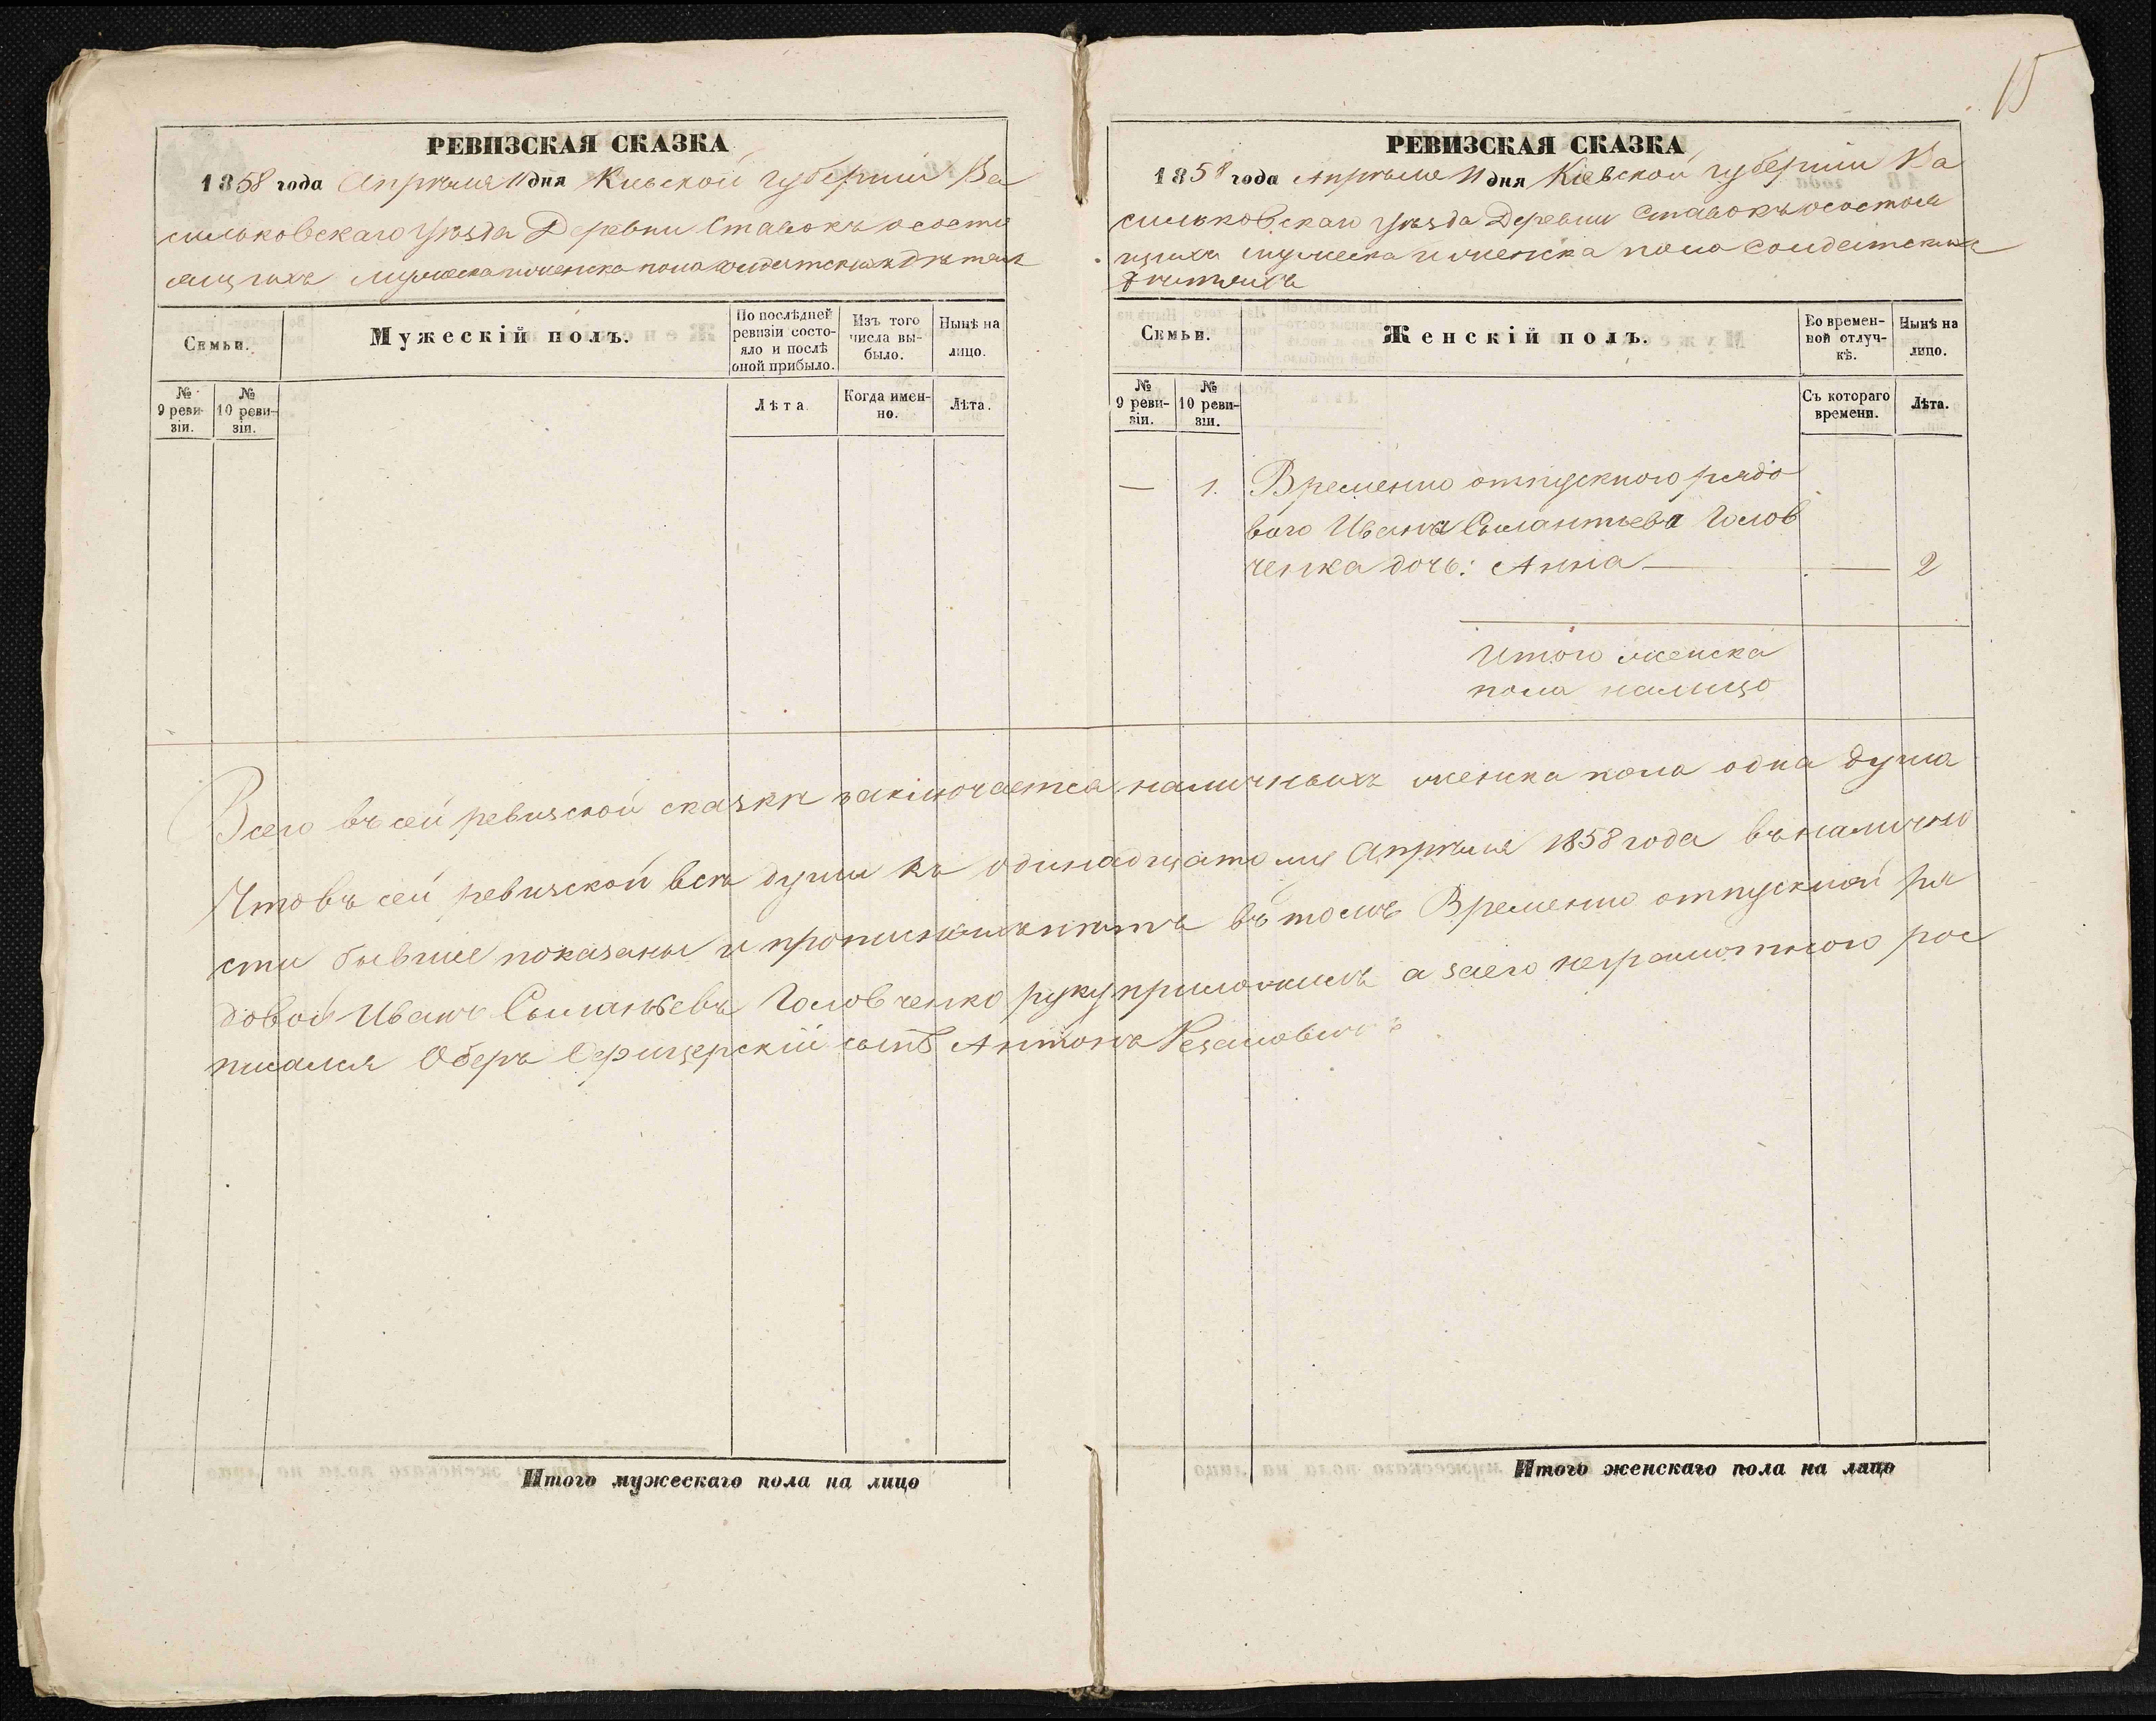 15
РЕВИЗСКАЯ СКАЗКА
1858 года Апрѣля 11 дня Кіевской губерніи Ва
сильковскаго уѣзда Деревни Ставокъ о состо
ящихъ мужеска и женска пола солдатскихъ дѣтяхъ
Семьи.
Мужескій полъ.
По послѣдней ревизіи состо-
яло и послѣ
оной прибыло.
Изъ того
числа вы-
было.
Нынѣ на
лицо.
№
9 реви-
зіи.
№
10 реви-
зіи.
Лѣта.
Когда имен-
но.
Лѣта.
РЕВИЗСКАЯ СКАЗКА
1858 года Апрѣля 11 дня Кіевской губерніи Ва
сильковскаго уѣзда Деревни Ставокъ о состоя
щихъ мужеска и женска пола Солдатскихъ
дѣтяхъ
Семьи.
Женскій полъ.
Во времен-
ной отлуч-
кѣ.
Нынѣ на
лицо.
№
9 реви-
зіи.
№
10 реви-
зіи.
Съ котораго
времени.
Лѣта.
— 1. Временно отпускного рядо
вого Ивана Силантьева Голов
ченка дочь: Анна — — 2
Итого женска
пола налицо
Всего въ сей ревизской сказкѣ заключается наличныхъ женска пола одна душа
Что въ сей ревизской всѣ души къ одинадцатому Апрѣля 1858 года въ налично
сти бывшіе показаны и прописныхъ нѣтъ въ томъ Временно отпускной ря
довой Иванъ Силантьевъ Головченко руку приложилъ а за его неграмотного рос
писался Оберъ Офицерскій сынъ Антонъ
Итого мужескаго пола на лицо
Итого женскаго пола на лицо